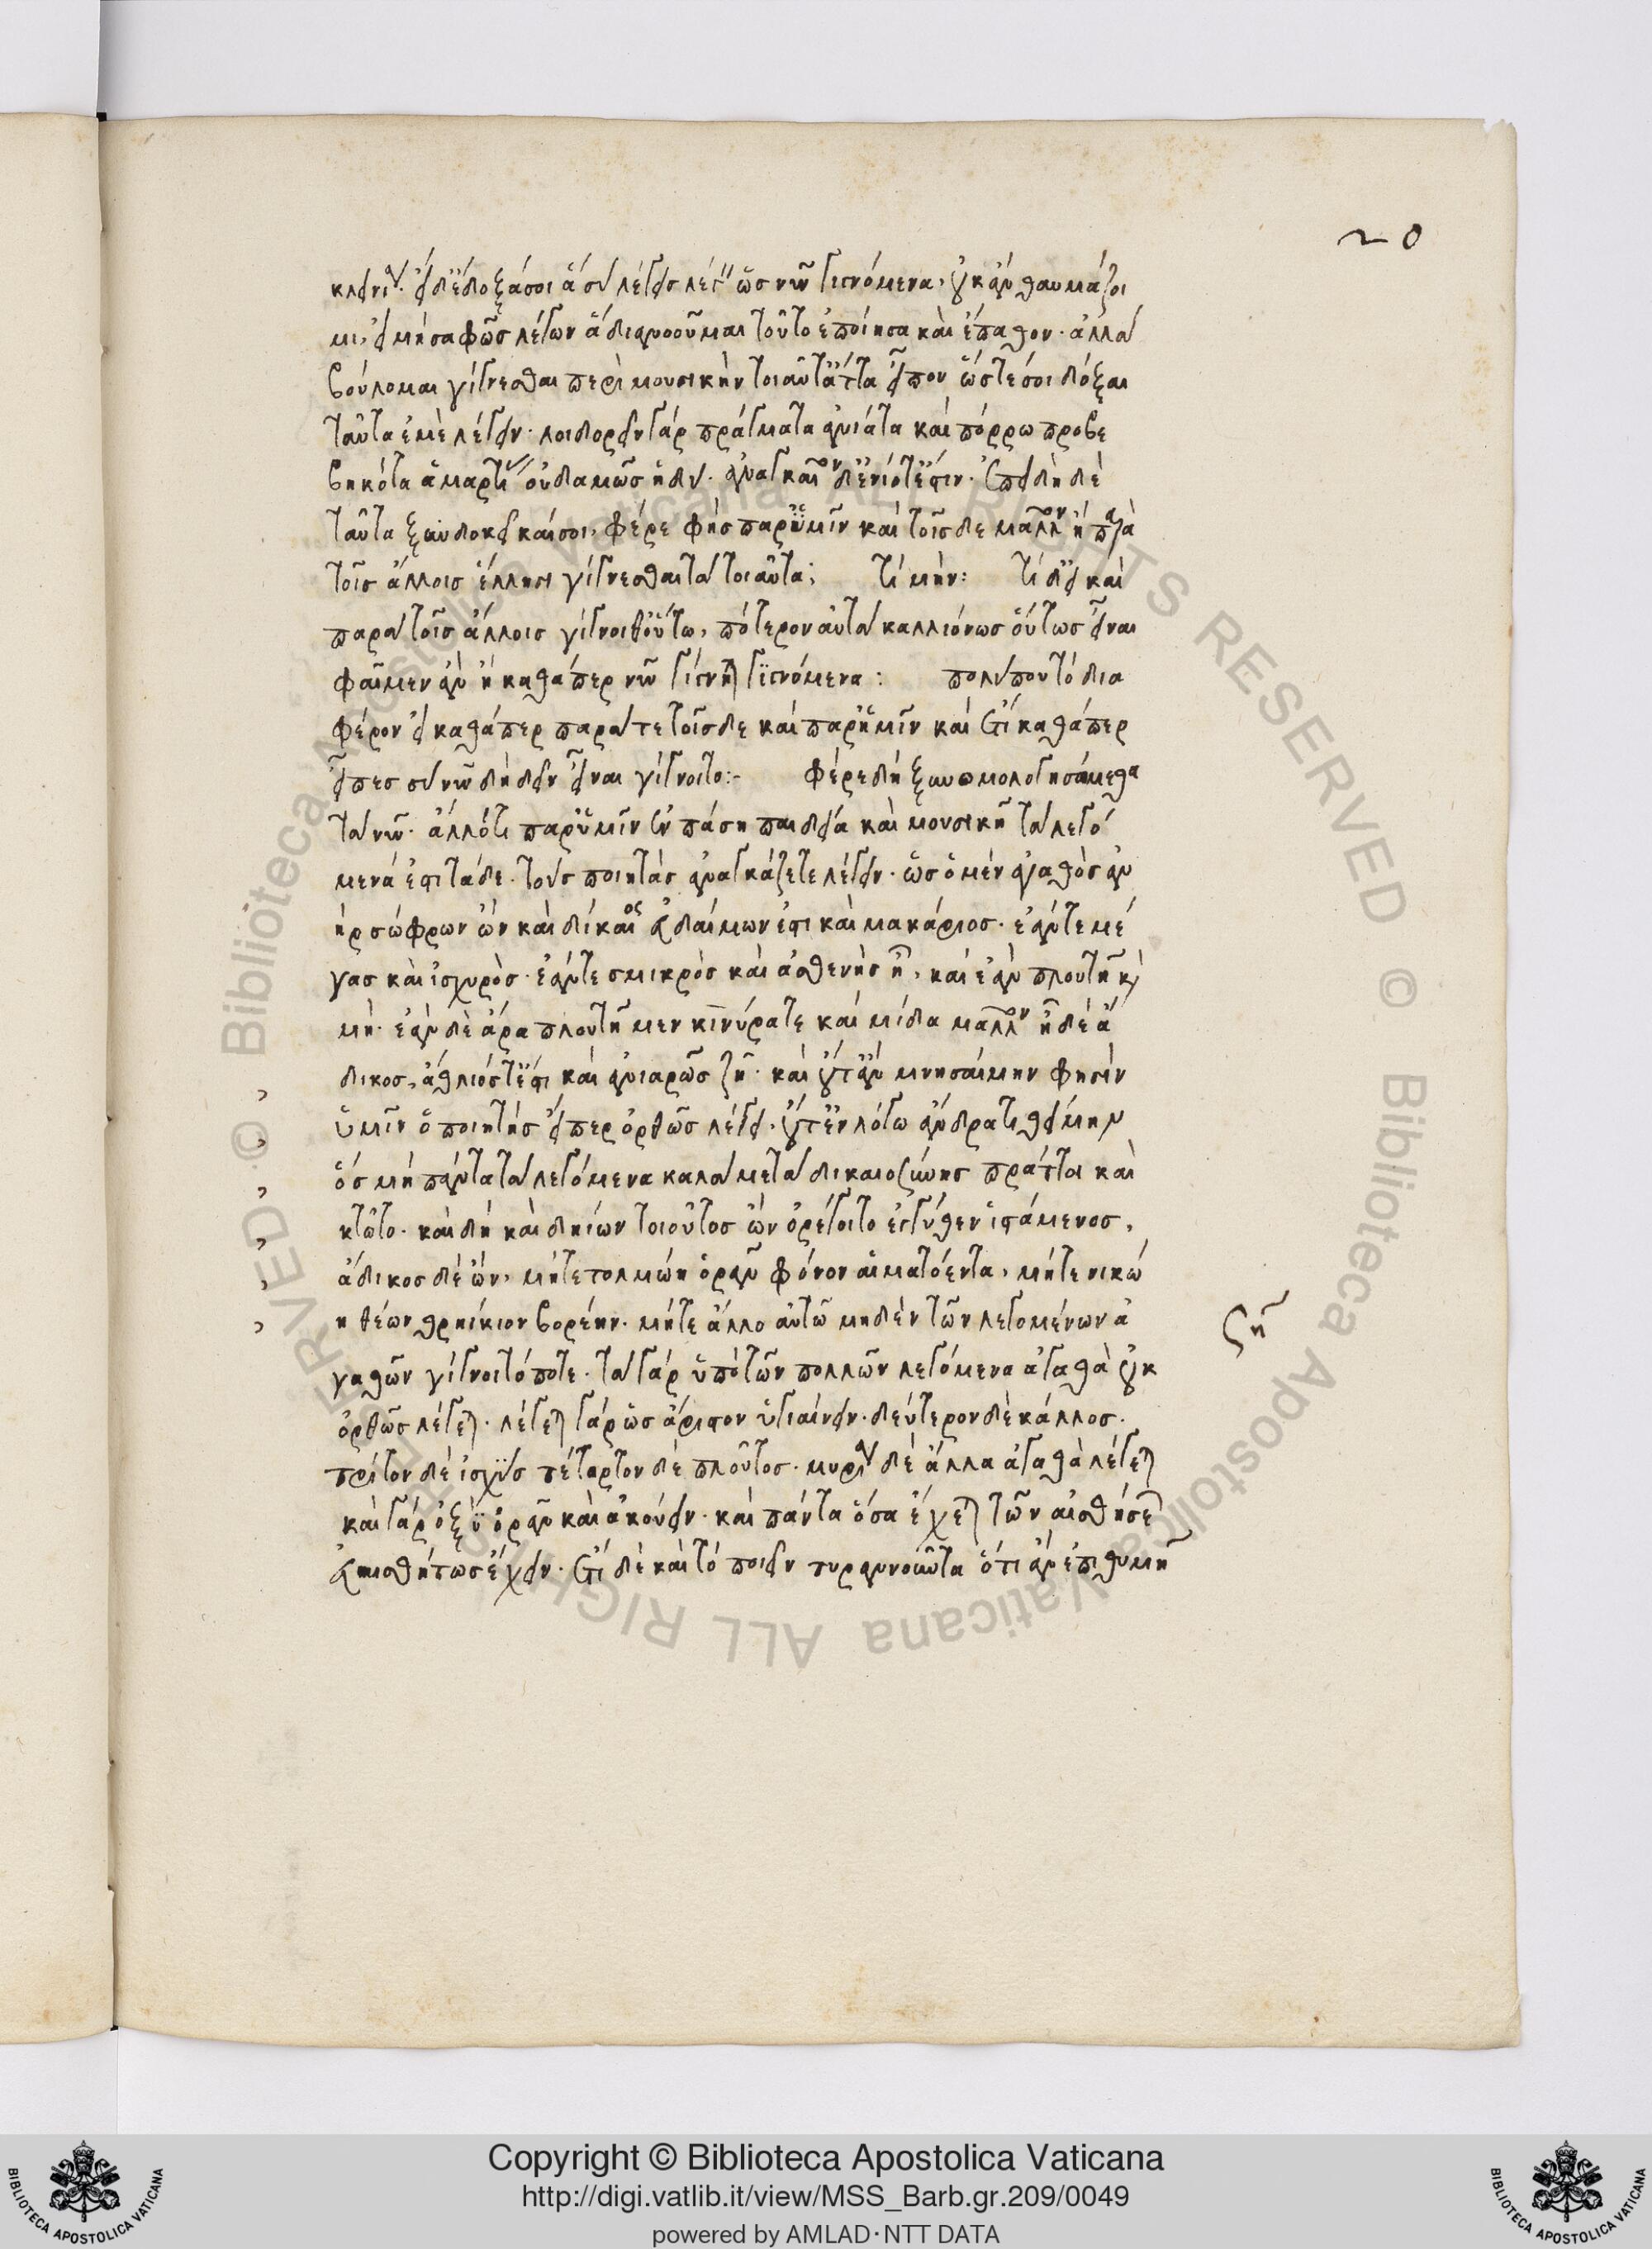 20
κλεινία. εἰ δ' ἔδοξά σοι ἃ σὺ λέγεις λέγειν ὡς νῦν γιγνόμενα, οὐκ ἂν θαυμάζοι
μι, εἰ μὴ σαφῶς λέγων ἃ διανοοῦμαι τοῦτο ἐποίησα καὶ ἔπαθον. ἀλλὰ
βούλομαι γίγνεσθαι περὶ μουσικὴν τοιαῦτ' ἄττα εἶπον ὥστε σοι δόξαι
ταῦτα ἐμὲ λέγειν. λοιδορεῖν γὰρ πράγματα ἀνίατα καὶ πόρρω προβε
βηκότα ἁμαρτίας οὐδαμῶς ἡδύ. ἀναγκαῖον δ' ἐνίοτέ ἐστιν. ἐπειδὴ δὲ
ταῦτα ξυνδοκεῖ καί σοι, φέρε φῂς παρ' ἡμῖν καὶ τοῖσδε μᾶλλον ἢ παρὰ
τοῖς ἄλλοις ἕλλησι γίγνεσθαι τὰ τοιαῦτα; τί μήν: τί δ' εἰ καὶ
παρὰ τοῖς ἄλλοις γίγνοιθ' οὕτω, πότερον αὐτὰ καλλιόνως οὕτως εἶναι
φαῖμεν ἂν ἢ καθάπερ νῦν γίγνεται γιγνόμενα: πολύ που τὸ δια
φέρον εἰ καθάπερ παρά τε τοῖσδε καὶ παρ' ἡμῖν καὶ ἔτι καθάπερ
εἶπες σὺ νῦν δὴ δεῖν εἶναι γίγνοιτο:- φέρε δὴ ξυνομολογησώμεθα
τὰ νῦν. ἄλλό τι παρ' ὑμῖν ἐν πάσῃ παιδείᾳ καὶ μουσικῇ τὰ λεγό
μενά ἐστι τάδε. τοὺς ποιητὰς ἀναγκάζετε λέγειν. ὡς ὁ μὲν ἀγαθὸς ἀν
ὴρ σώφρων ὢν καὶ δίκαιος εὐδαίμων ἐστι καὶ μακάριος. ἐάν τε μέ
γας καὶ ἰσχυρὸς. ἐάν τε σμικρὸς καὶ ἀσθενὴς ᾖ, καὶ ἐὰν πλουτῇ καὶ
μή. ἐὰν δὲ ἄρα πλουτῇ μεν κινύρα τε καὶ μίδα μᾶλλον ᾖ δὲ ἄ
δικος, ἄθλιός τέ ἐστι καὶ ἀνιαρῶς ζῇ. καὶ οὔτ' ἂν μνησαίμην φησὶν
ὑμῖν ὁ ποιητής εἴπερ ὀρθῶς λέγει, οὔτ' ἐν λόγῳ ἄνδρα τιθείμην
ὅς μὴ πάντα τὰ λεγόμενα καλὰ μετὰ δικαιοσύνης πράττοι καὶ
κτῷτο. καὶ δὴ καὶ δηίων τοιοῦτος ὢν ὀρέγοιτο ἐγγύθεν ἱστάμενος,
ἄδικος δὲ ὢν, μήτε τολμῴη ὁρᾶν φόνον αἱματόεντα, μήτε νικῴ
η θέων θρηίκιον βορέην. μήτε ἄλλο αὐτῷ μηδὲν τῶν λεγομένων ἀ
γαθῶν γίγνοιτό ποτε. τὰ γὰρ ὑπὸ τῶν πολλῶν λεγόμενα ἀγαθὰ οὐκ
ὀρθῶς λέγεται. λέγεται γὰρ ὡς ἄριστον ὑγιαίνειν. δεύτερον δὲ κάλλος.
τρίτον δὲ ἰσχύς τέταρτον δὲ πλοῦτος. μυρία δὲ ἄλλα ἀγαθὰ λέγεται
καὶ γὰρ ὀξὺ ὁρᾶν καὶ ἀκούειν. καὶ πάντα ὅσα ἔχεται τῶν αἰσθήσε
εὐαισθήτως ἔχειν. ἔτι δὲ καὶ τὸ ποιεῖν τυραννοῦντα ὅτι ἂν ἐπιθυμῇ
ση
Copyright © Biblioteca Apostolica Vaticana
http://digi.vatlib.it/view/MSS_Barb.gr.209/0049
powered by AMLAD·NTT DATA